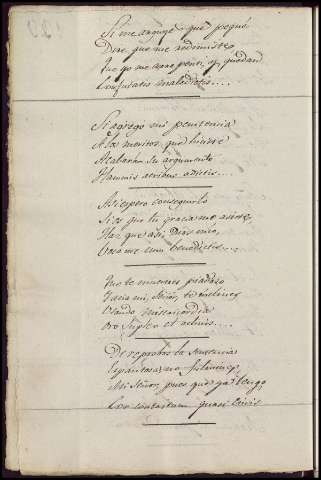 Si me arguyó que pequé
Dire, que me redimiste
Que yo me arrepenti, y quedan
Confutatis maledictis...
Si agrego mi penitencia
A los meritos, que hiciste
Acabará su argumento
Flammis acribus addictis...
Asi espero conseguirlo
Si es que tu gracia me asiste,
Haz que asi, Dios mio,
Voca me cum benedictis...
Que te muestres piadoso
Hacia mi, Señor, te
Usando misericordia
Oro supplex et aclinis...
De reprobos la sentencia
Espantosa, no fulmines,
Mi Señor, pues que ya tengo
Cor contritum quasi cinis